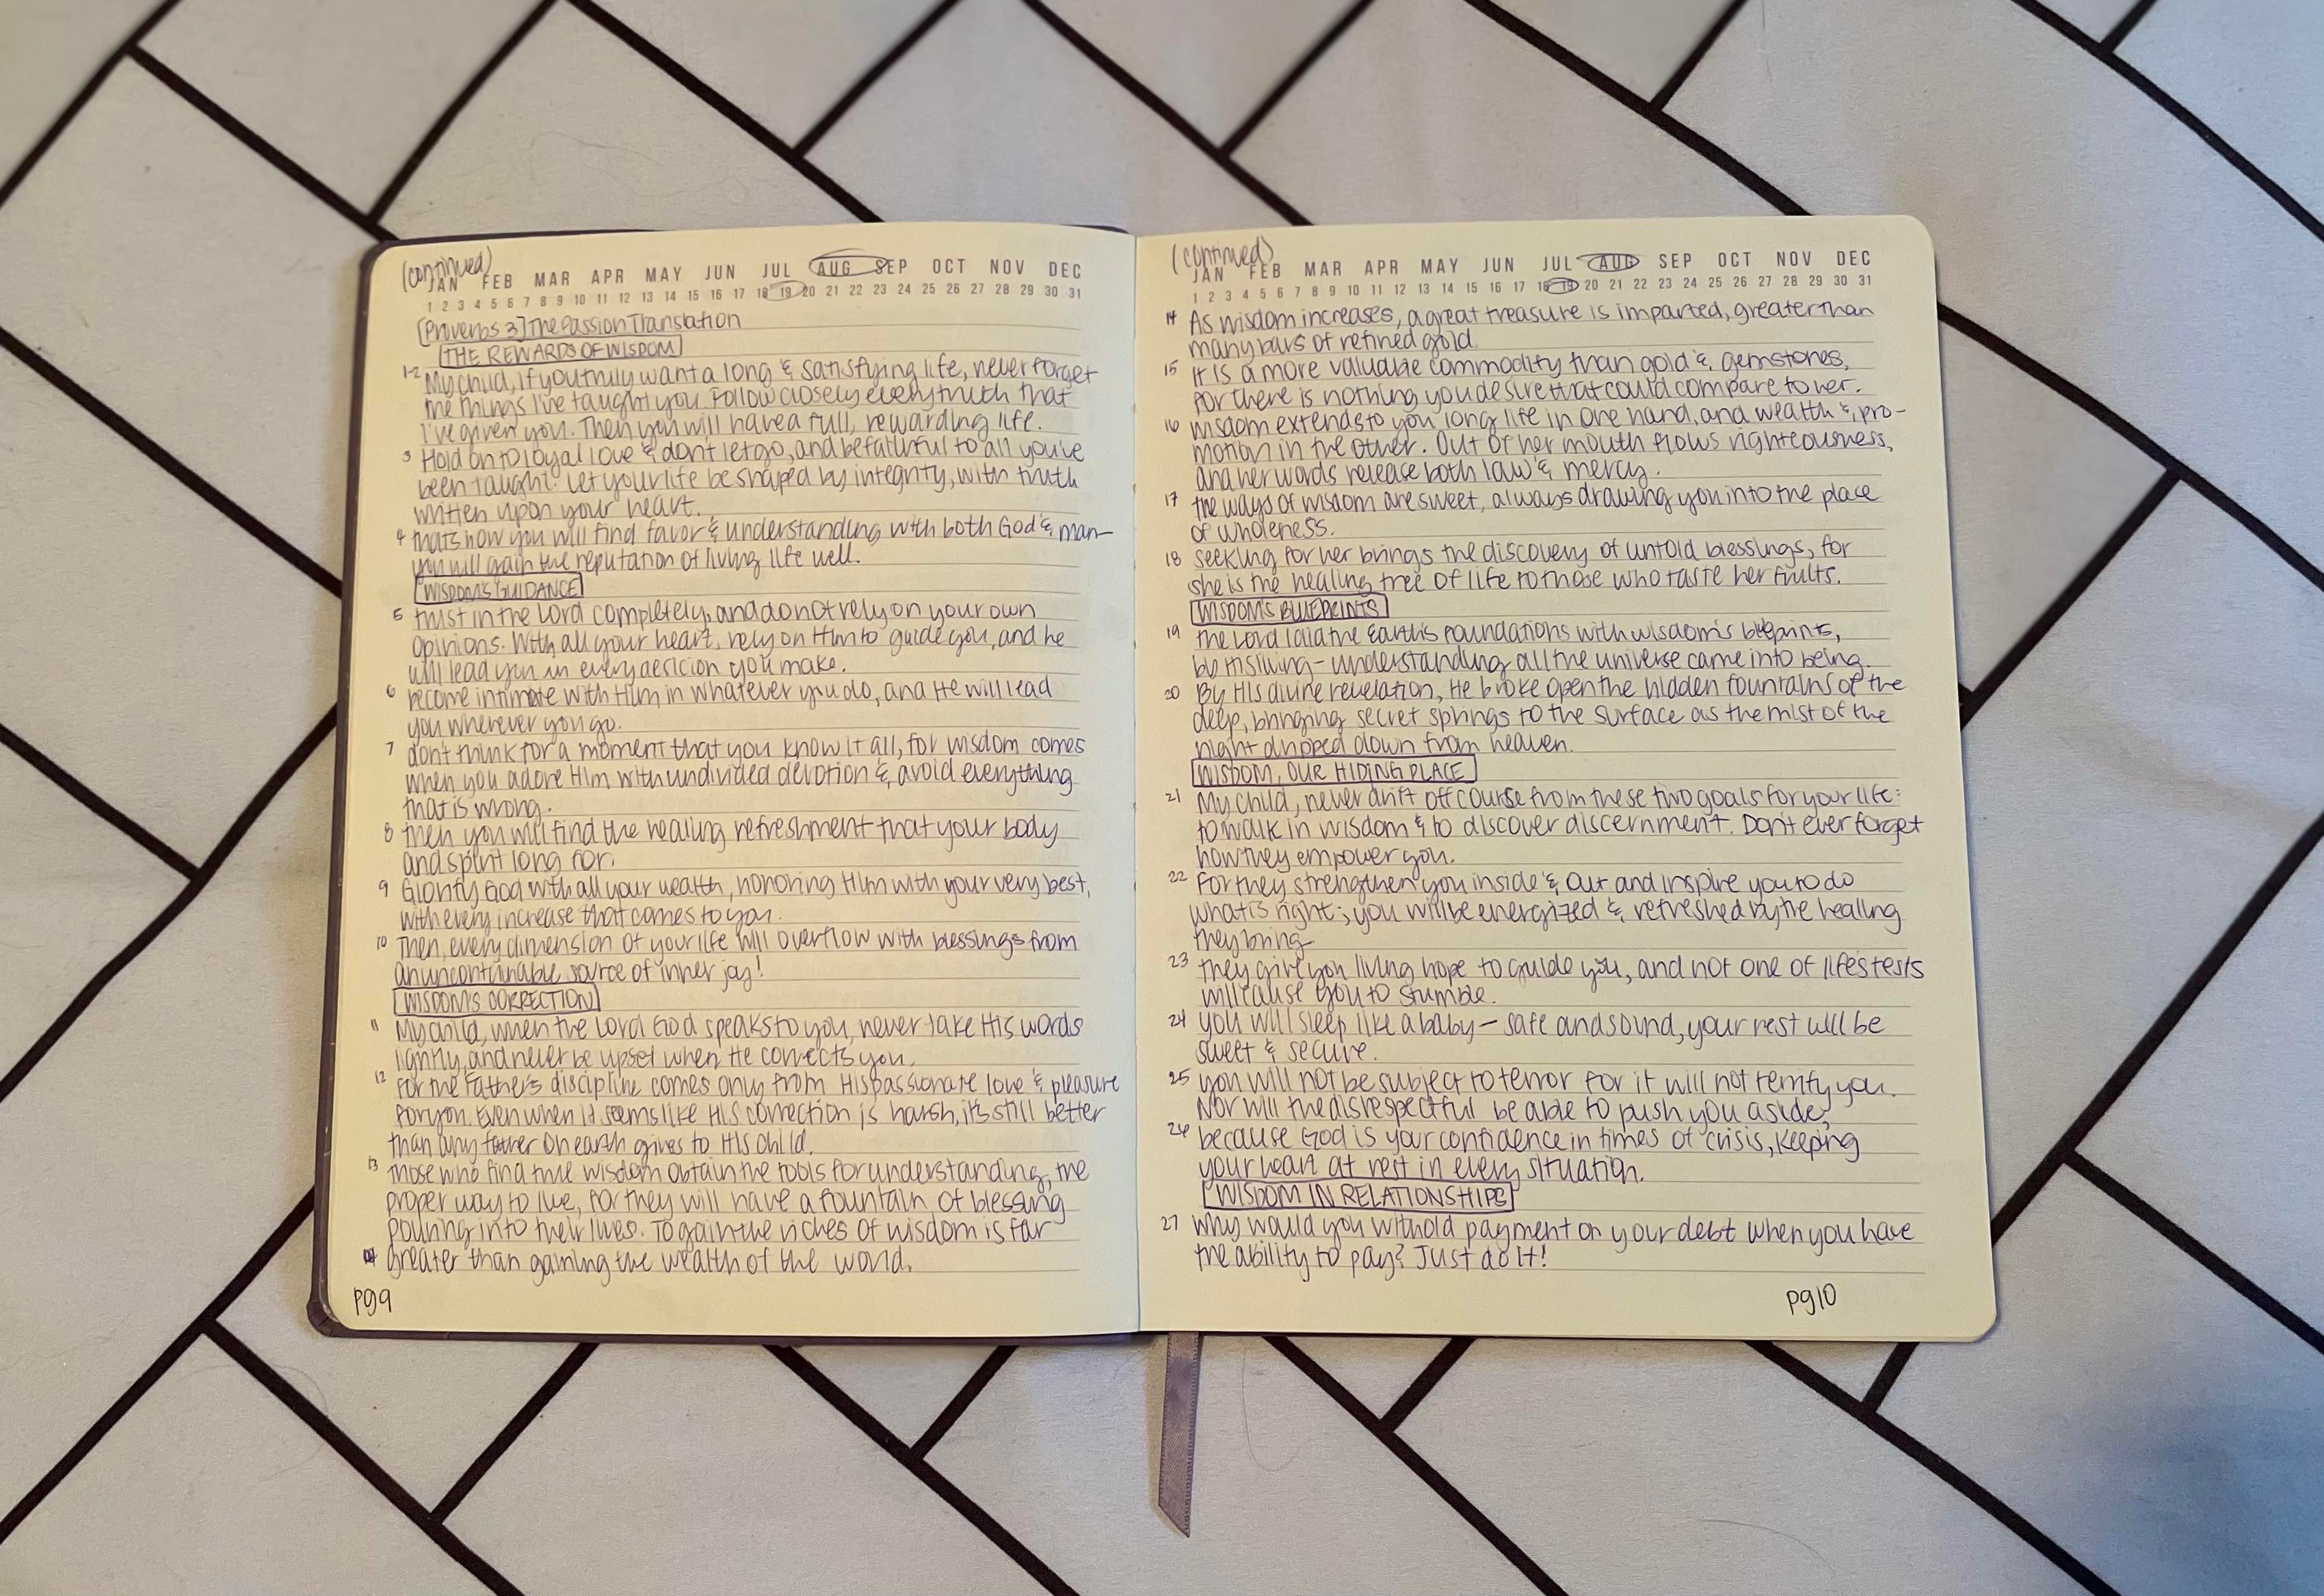 (continued)
JAN FEB MAR APR MAY JUN JUL AUG SEP OCT NOV DEC
1 2 3 4 5 6 7 8 9 10 11 12 13 14 15 16 17 18 19 20 21 22 23 24 25 26 27 28 29 30 31
[Proverbs 3] The Passion Translation
THE REWARDS OF WISDOM
1-2 My child, if you truly want a long & satisfying life, never forget
the things I've taught you. Follow closely every truth that
I've given you. Then you will have a full, rewarding life.
3 Hold on to loyal love & don't let go, and be faithful to all you've
been taught. Let your life be shaped by integrity, with truth
written upon your heart.
4 thats how you will find favor & understanding with both God & man—
you will gain the reputation of living life well.
WISDOM'S GUIDANCE
5 trust in the Lord completely, and do not rely on your own
opinions. With all your heart, rely on Him to guide you, and he
will lead you in every desicion you make.
6 become intimate with Him in whatever you do, and He will lead
you wherever you go.
7 don't think for a moment that you know it all, for wisdom comes
when you adore Him with undivided devotion & avoid everything
that is wrong.
8 then you will find the healing refreshment that your body
and spirit long for.
9 Glorify God with all your wealth, honoring Him with your very best,
with every increase that comes to you.
10 Then, every dimension of your life will overflow with blessings from
an uncontainable source of inner joy!
WISDOM'S CORRECTION
11 My child, when the Lord God speaks to you, never take His words
lightly, and never be upset when He corrects you.
12 for the Father's discipline comes only from His passionate love & pleasure
for you. Even when it seems like His correction is harsh, it's still better
than any father on earth gives to His child.
13 those who find true wisdom obtain the tools for understanding, the
proper way to live, for they will have a fountain of blessing
pouring into their lives. To gain the riches of wisdom is far
greater than gaining the wealth of the world.
pg 9
(continued)
JAN FEB MAR APR MAY JUN JUL AUG SEP OCT NOV DEC
1 2 3 4 5 6 7 8 9 10 11 12 13 14 15 16 17 18 19 20 21 22 23 24 25 26 27 28 29 30 31
14 As wisdom increases, a great treasure is imparted, greater than
many bars of refined gold.
15 It is a more valuable commodity than gold & gemstones,
for there is nothing you desire that could compare to her.
16 wisdom extends to you long life in one hand, and wealth & pro-
motion in the other. Out of her mouth flows righteousness,
and her words release both law & mercy.
17 the ways of wisdom are sweet, always drawing you into the place
of wholeness.
18 seeking for her brings the discovery of untold blessings, for
she is the healing tree of life to those who taste her fruits.
WISDOM'S BLUEPRINTS
19 the Lord laid the Earth's foundations with wisdom's blueprints,
by His living-understanding all the universe came into being.
20 By His divine revelation, He broke open the hidden fountains of the
deep, bringing secret springs to the surface as the mist of the
night dripped down from heaven.
WISDOM, OUR HIDING PLACE
21 My child, never drift off course from these two goals for your life:
to walk in wisdom & to discover discernment. Don't ever forget
how they empower you.
22 for they strengthen you inside & out and inspire you to do
what is right; you will be energized & refreshed by the healing
they bring
23 they give you living hope to guide you, and not one of lifes tests
will cause you to stumble.
24 you will sleep like a baby—safe and sound, your rest will be
sweet & secure.
25 you will not be subject to terror for it will not terrify you.
Nor will the disrespectful be able to push you aside,
26 because God is your confidence in times of crisis, keeping
your heart at rest in every situation.
WISDOM IN RELATIONSHIPS
27 Why would you withold payment on your debt when you have
the ability to pay? Just do It!
pg 10